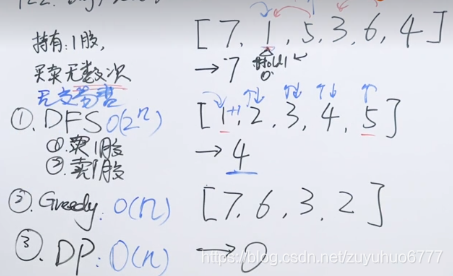 [7, 1, 5, 3, 6, 4]
持有:1股,
→7
买卖无数次
无交易费
[1, 2, 3, 4, 5]
+1
①. DFS O(2^n)
①买1股
②卖1股
→4
②. Greedy: O(n)
[7, 6, 3, 2]
③. DP: O(n)
→0
https://blog.csdn.net/zuyuhuo6777